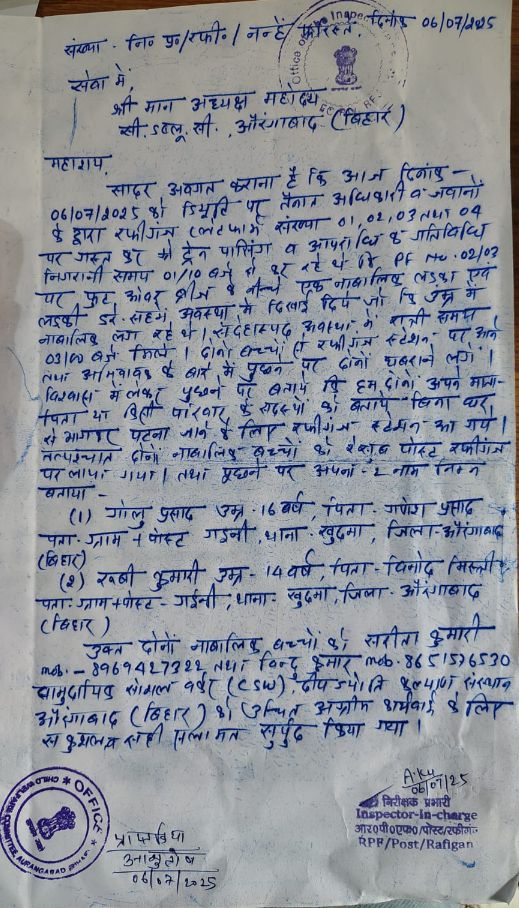 संख्या - नि० प्र०/रफी०/ नन्हे फरिस्ते, दिनांक 06/07/2025
Office of the Inspector
सेवा में,
श्री मान अध्यक्ष महोदय
सी. डबलू. सी., औरंगाबाद (बिहार)
महाशय,
सादर अवगत कराना है कि आज दिनांक -
06/07/2025 को डियुटि पर तैनात अधिकारी व जवानों
के द्वारा रफीगंज प्लेटफार्म संख्या 01, 02, 03 तथा 04
पर गस्त कर ट्रेन पासिंग व आपराधिक गतिविधि
निगरानी समय 01/10 बजे से कर रहे थे कि PF No. 02/03
पर फुट ओवर ब्रीज के नीचे एक नाबालिक लड़का एवं
लड़की डरे-सहमे अवस्था में दिखाई दिये जो कि उम्र में
नाबालिक लग रहे थे। संदेहास्पद अवस्था में रात्री समय
03/00 बजे मिले। दोनों बच्चों से रफीगंज स्टेशन पर आने
तथा अभिभावक के बारे में पुछने पर दोनों घबराने लगे।
विश्वास में लेकर पुछने पर बताये कि हम दोनों अपने माता-
पिता या किसी परिवार के सदस्यों को बताये बिना घर
से भागकर पटना जाने के लिए रफीगंज स्टेशन आ गये।
तत्पश्चात दोनों नाबालिक बच्चों को पोस्ट रफीगंज
पर लाया गया। तथा पुछने पर अपना-2 नाम निम्न
बताया -
(1) गोलु प्रसाद उम्र-16 वर्ष, पिता- गणेश प्रसाद
पता- ग्राम + पोस्ट गइनी, थाना- खुदमा, जिला- औरंगाबाद
(बिहार)
(2) रूबी कुमारी उम्र- 14 वर्ष, पिता- विनोद मिस्त्री
पता- ग्राम+पोस्ट- गईनी, थाना- खुदमा, जिला- औरंगाबाद
(बिहार)
उक्त दोनों नाबालिक बच्चों को सरीता कुमारी
mob.- 8969427322 तथा विन्दु कुमार mob. 8651576530
सामुदायिक सोसल वर्कर (CSW), दीप ज्योति कल्याण संस्थान
औरंगाबाद (बिहार) को उचित अग्रीम कार्यवाई के लिए
सकुशल व सही सलामत सुर्पुद किया गया।
A.Ku
06/07/25
निरीक्षक प्रभारी
Inspector-in-charge
आर०पी०एफ०/पोस्ट/रफीगंज
RPF/Post/Rafigan
OFFICE
CHILD WELFARE COMMITTEE, AURANGABAD
प्राप्त किया
आशुतोष
06/07/2025